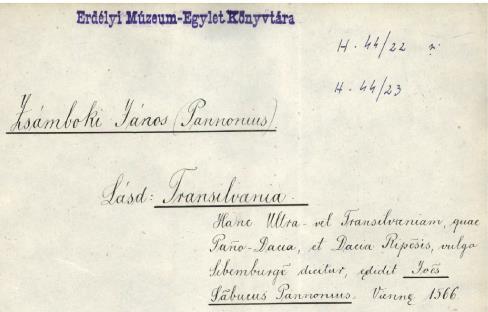 Erdélyi Múzeum-Egylet Könyvtára
H. 44/22
H. 44/23
Zsámboki János (Pannonius)
Lásd: Transilvania.
Hanc Ultra- vel Transilvaniam, quae
Pano-Dacia, et Dacia Ripēsis, vulgo
Sibemburgē dicitur, edidit Joēs
Sābucus Pannonius. Viennę 1566.